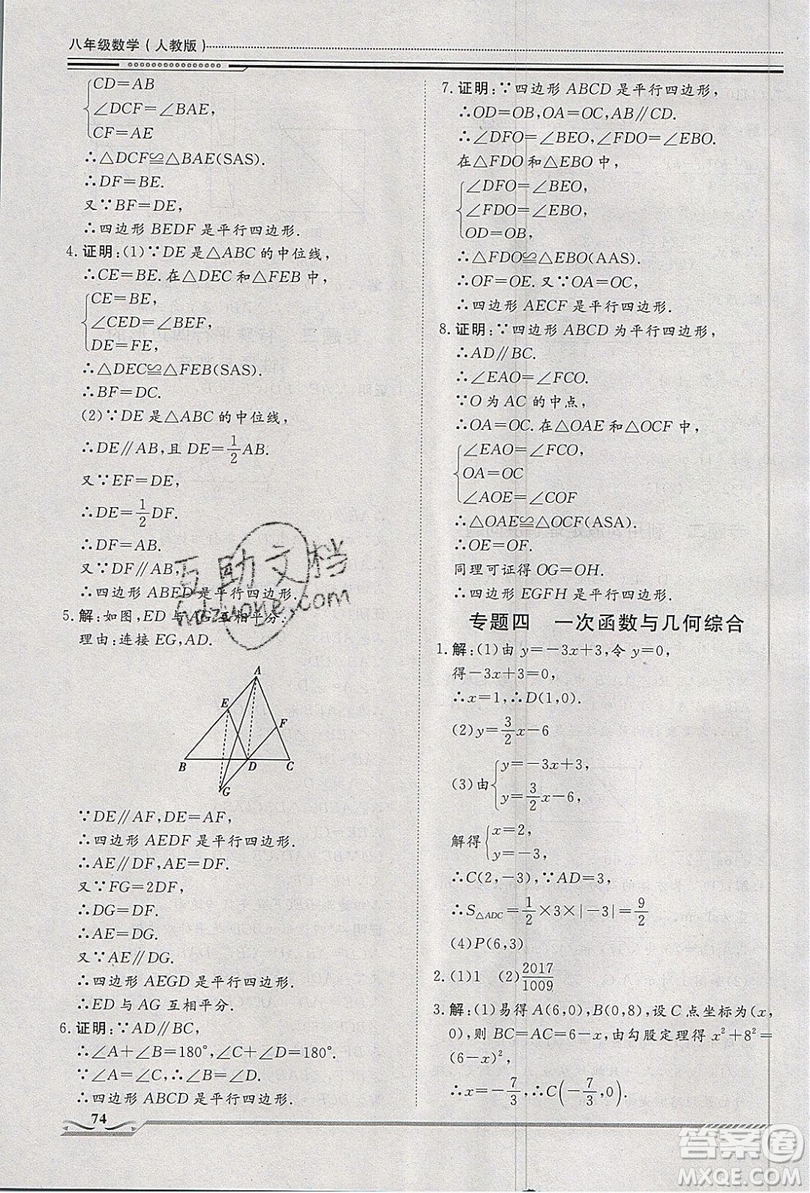 八年级数学(人教版)
{CD=AB
∠DCF=∠BAE,
CF=AE
∴△DCF≌△BAE(SAS).
∴DF=BE.
又∵BF=DE,
∴四边形 BEDF 是平行四边形.
4. 证明:(1)∵DE 是△ABC 的中位线,
∴CE=BE. 在△DEC 和△FEB 中,
{CE=BE,
∠CED=∠BEF,
DE=FE,
∴△DEC≌△FEB(SAS).
∴BF=DC.
(2)∵DE 是△ABC 的中位线,
∴DE∥AB,且 DE=1/2AB.
又∵EF=DE,
∴DE=1/2DF.
∴DF=AB.
又∵DF∥AB,
∴四边形 ABED 是平行四边形.
5. 解:如图,ED 与 AG 互相平分.
理由:连接 EG,AD.
A
E
F
B
D
C
G
∵DE∥AF,DE=AF,
∴四边形 AEDF 是平行四边形.
∴AE∥DF,AE=DF.
又∵FG=2DF,
∴DG=DF.
∴AE=DG.
又∵AE∥DG.
∴四边形 AEGD 是平行四边形.
∴ED 与 AG 互相平分.
6. 证明:∵AD∥BC,
∴∠A+∠B=180°,∠C+∠D=180°.
∵∠A=∠C,∴∠B=∠D.
∴四边形 ABCD 是平行四边形.
74
7. 证明:∵四边形 ABCD 是平行四边形,
∴OD=OB,OA=OC,AB∥CD.
∴∠DFO=∠BEO,∠FDO=∠EBO.
在△FDO 和△EBO 中,
{∠DFO=∠BEO,
∠FDO=∠EBO,
OD=OB,
∴△FDO≌△EBO(AAS).
∴OF=OE. 又∵OA=OC,
∴四边形 AECF 是平行四边形.
8. 证明:∵四边形 ABCD 为平行四边形,
∴AD∥BC.
∴∠EAO=∠FCO.
∵O 为 AC 的中点,
∴OA=OC. 在△OAE 和△OCF 中,
{∠EAO=∠FCO,
OA=OC
∠AOE=∠COF
∴△OAE≌△OCF(ASA).
∴OE=OF.
同理可证得 OG=OH.
∴四边形 EGFH 是平行四边形.
专题四 一次函数与几何综合
1. 解:(1)由 y=-3x+3,令 y=0,
得-3x+3=0,
∴x=1,∴D(1,0).
(2)y=3/2x-6
(3)由{y=-3x+3,
y=3/2x-6,
解得{x=2,
y=-3,
∴C(2,-3). ∵AD=3,
∴S△ADC=1/2×3×|-3|=9/2
(4)P(6,3)
2. (1)1 (2)2017/1009
3. 解:(1)易得 A(6,0),B(0,8),设 C 点坐标为(x,
0),则 BC=AC=6-x,由勾股定理得 x²+8²=
(6-x)²,
∴x=-7/3,∴C(-7/3,0).
互助文档
hdzuowe.com
答案圈
MXQE.COM